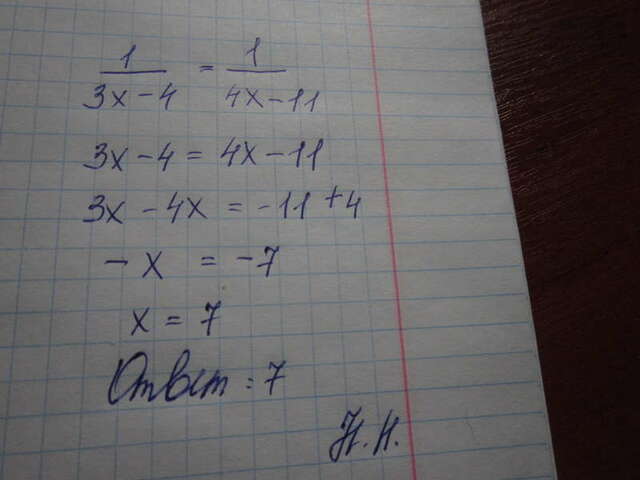 1/(3x-4) = 1/(4x-11)
3x-4 = 4x-11
3x-4x = -11+4
-x = -7
x = 7
Ответ: 7
Н.Н.